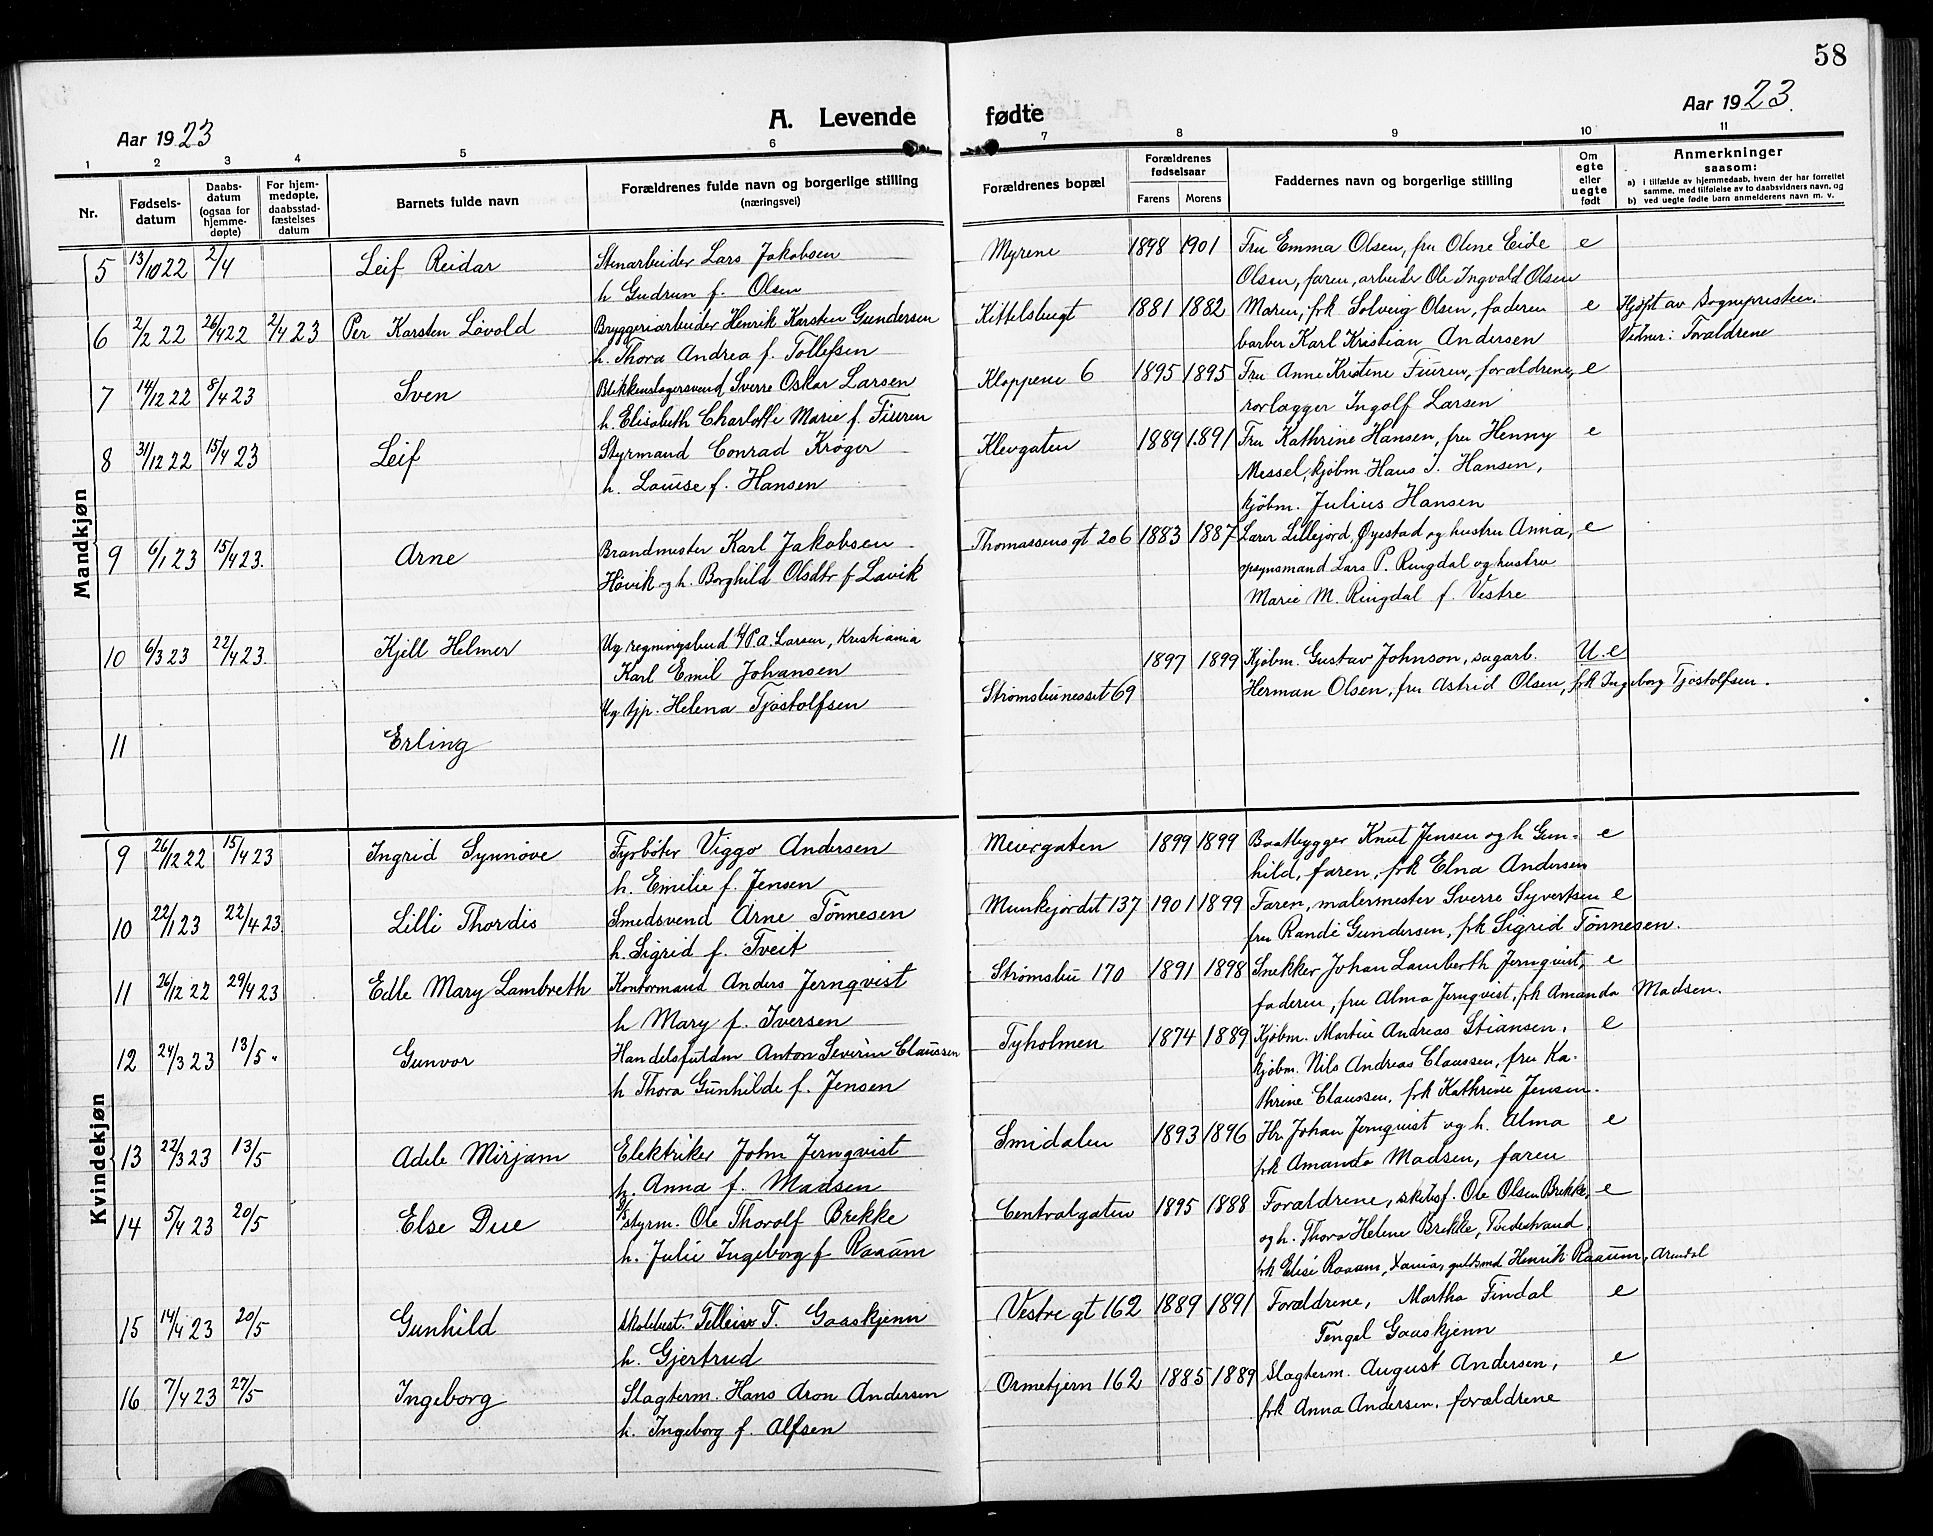 58
Aar 1923
A. Levende fødte
Aar 1923.
1 2 3 4 5 6 7 8 9 10 11
Nr.
Fødsels-
datum
Daabs-
datum
(ogsaa for
hjemme-
døpte)
For hjem-
medøpte,
daabsstad-
fæstelses
datum
Barnets fulde navn
Forældrenes fulde navn og borgerlige stilling
(næringsvei)
Forældrenes bopæl
Forældrenes
fødselsaar
Farens Morens
Faddernes navn og borgerlige stilling
Om
egte
eller
uegte
født
Anmerkninger
saasom:
a) i tilfælde av hjemmedaab, hvem der har forrettet
samme, med tilføielse av to daabsvidners navn, og
b) ved uegte fødte barn anmelderens navn m. v.
Mandkjøn
5 13/10 22 2/4 Leif Reidar Stenarbeider Lars Jakobsen Myrene 1898 1901 Fru Emma Olsen, fru Oline Eide e
h Gudrun f. Olsen Olsen, faren, arbeider Ole Ingvald Olsen
6 2/2 22 26/4 22 2/4 23 Per Karsten Lövold Bryggeriarbeider Henrik Karsten Gundersen Kittelsbugt 1881 1882 Maren, frk Solveig Olsen, faderen e Hjdpt av Sognepresten.
h. Thora Andrea f. Tollefsen barber Karl Kristian Andersen Vidner: Foraldrene
7 14/12 22 8/4 23 Sven Blikkenslagersvend Sverre Oskar Larsen Kloppene 6 1895 1895 Fru Anne Kristine Fiuren, foraldrene, e
h. Elisabeth Charlotte Marie f. Fiuren rorlægger Ingolf Larsen
8 31/12 22 15/4 23 Leif Styrmand Conrad Krøger Klevgaten 1889 1891 Fru Kathrine Hansen, fru Henny e
h. Louise f. Hansen Messel, kjøbm. Hans J. Hansen,
kjøbm. Julius Hansen
9 6/1 23 15/4 23. Arne Brandmester Karl Jakobsen Thomassens gt 206 1883 1887 Lærer Lillejord, Øyestad og hustru Anna, e
Hövik og h. Borghild Olsdtr f Lavik opsynsmand Lars P. Ringdal og hustru
Marie M. Ringdal f. Vestre
10 6/3 23 22/4 23. Kjell Helmer Ug regningsbud A/S P.A. Larsen, Kristiania 1897 1899 Kjøbm. Gustav Johnson, sagarb. U.e
Karl Emil Johansen Strømsbunesset 69 Herman Olsen, fru Astrid Olsen, frk Ingeborg Tjøstolfsen.
Ug tjp. Helena Tjøstolfsen
11 Erling
Kvindekjøn
9 26/12 22 15/4 23 Ingrid Synnøve Fyrbøter Viggo Andersen Meiergaten 1899 1899 Baatbygger Knut Jensen og h Gun- e
h. Emilie f. Jensen hild, faren, frk Elna Andersen
10 22/1 23 22/4 23. Lilli Thordis Smedsvend Arne Tönnesen Munkejordet 137 1901 1899 Faren, malermester Sverre Syvertsen e
h. Sigrid f. Tveit fru Randi Gundersen, frk Sigrid Tönnesen.
11 26/12 22 29/4 23 Edle Mary Lambreth Kontormand Anders Jernqvist Strømsbu 170 1891 1898 Snekker Johan Lamberth Jernqvist, e
h Mary f. Iversen faderen, fru Alma Jernqvist, frk Amanda Madsen.
12 24/3 23 13/5 " Gunvor Handelsfuldm Anton Severin Claussen Tyholmen 1874 1889 Kjøbm. Martin Andreas Stiansen, e
h Thora Gunhilde f. Jensen kjøbm. Nils Andreas Claussen, fru Ka-
thrine Claussen, frk Kathrine Jensen.
13 22/3 23 13/5 Adele Mirjam Elektriker John Jernqvist Smidalen 1893 1896 Hr. Johan Jernqvist og h. Alma e
h. Anna f. Madsen frk Amanda Madsen, faren
14 5/4 23 20/5 Else Due styrm. Ole Thorolf Brekke Centralgaten 1895 1888 Foraldrene, skibsf. Ole Olsen Brekke, e
h. Julie Ingeborg f Raaum og h. Thora Helene Brekke, Tvedestrand,
frk Elise Raaum, Xania, guldsmed Henrik Raaum, Arendal
15 14/4 23 20/5 Gunhild skolebest. Telleiv T. Gaaskjenn Vestre gt 162 1889 1891 Foraldrene, Martha Findal e
h. Gjertrud Tengel Gaaskjenn
16 7/4 23 27/5 Ingeborg Slagterm. Hans Aron Andersen Ormetjern 162 1885 1889 Slagterm. August Andersen, e
h. Ingeborg f. Alfsen frk Anna Andersen, foraldrene